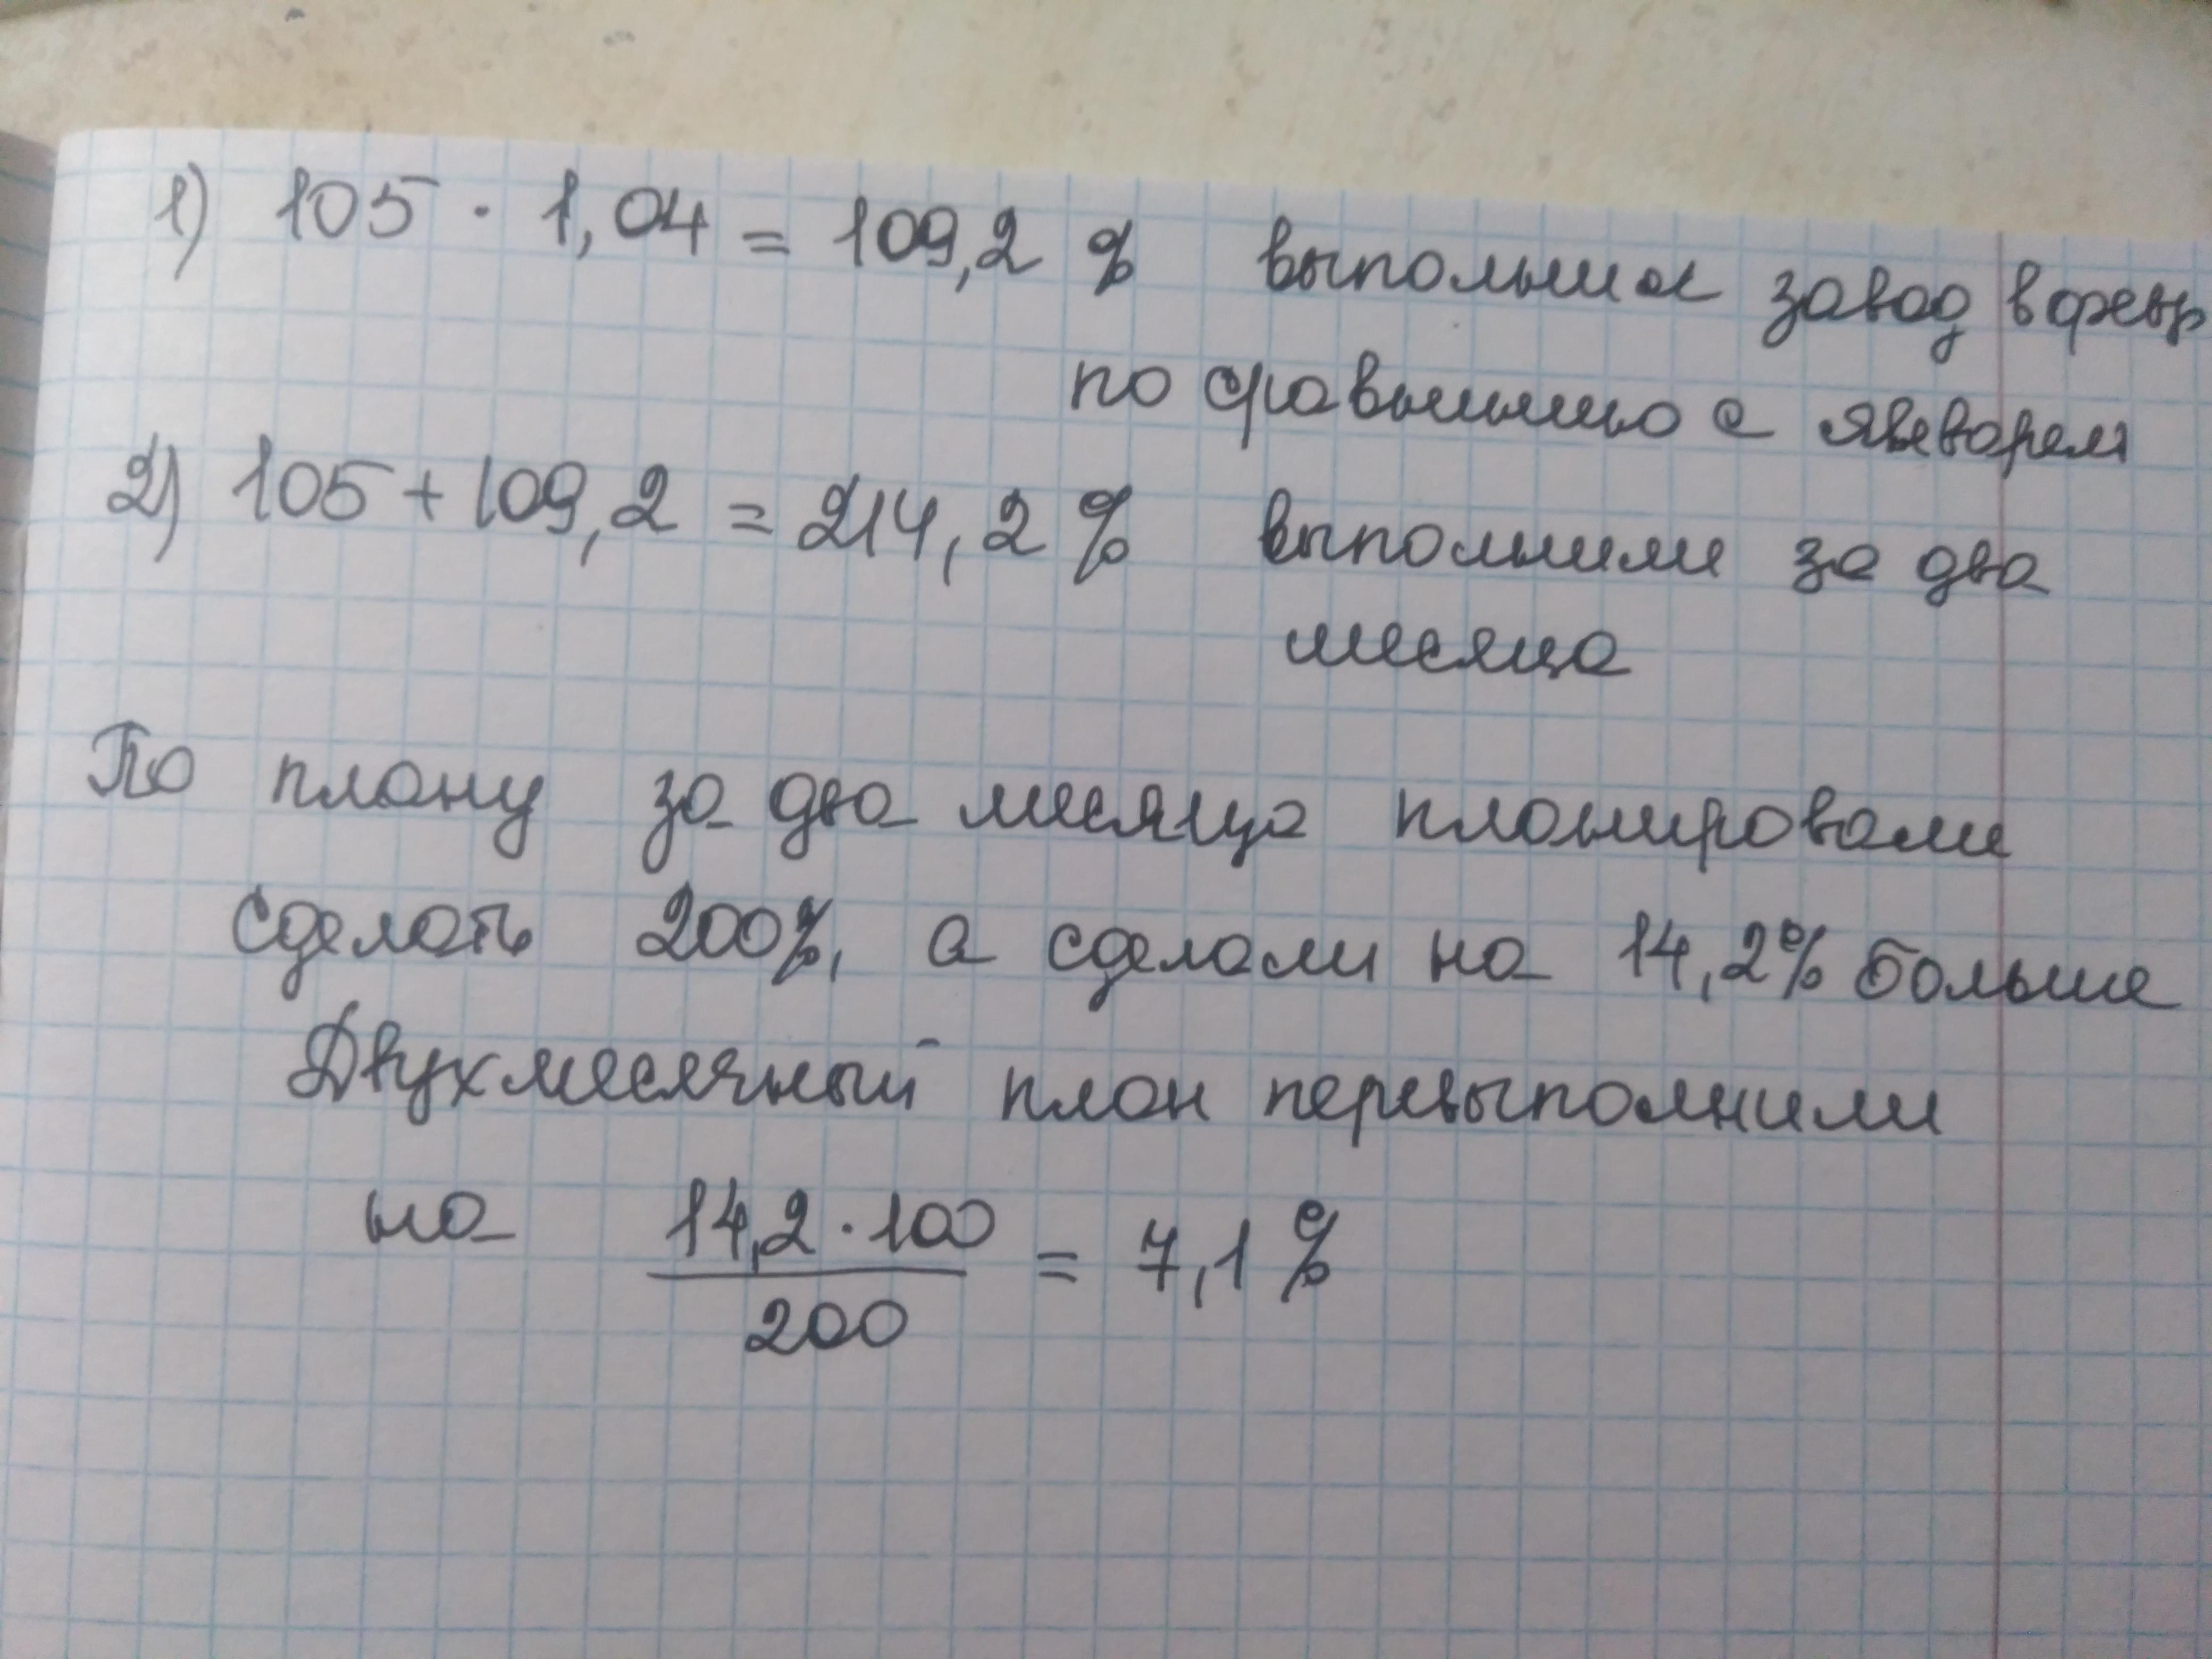 1) 105 · 1,04 = 109,2 % выполнил завод в февр
по сравнению с январем
2) 105 + 109,2 = 214,2 % выполнили за два
месяца
По плану за два месяца планировали
сделать 200%, а сделали на 14,2% больше
Двухмесячный план перевыполнили
на 14,2 · 100 / 200 = 7,1 %